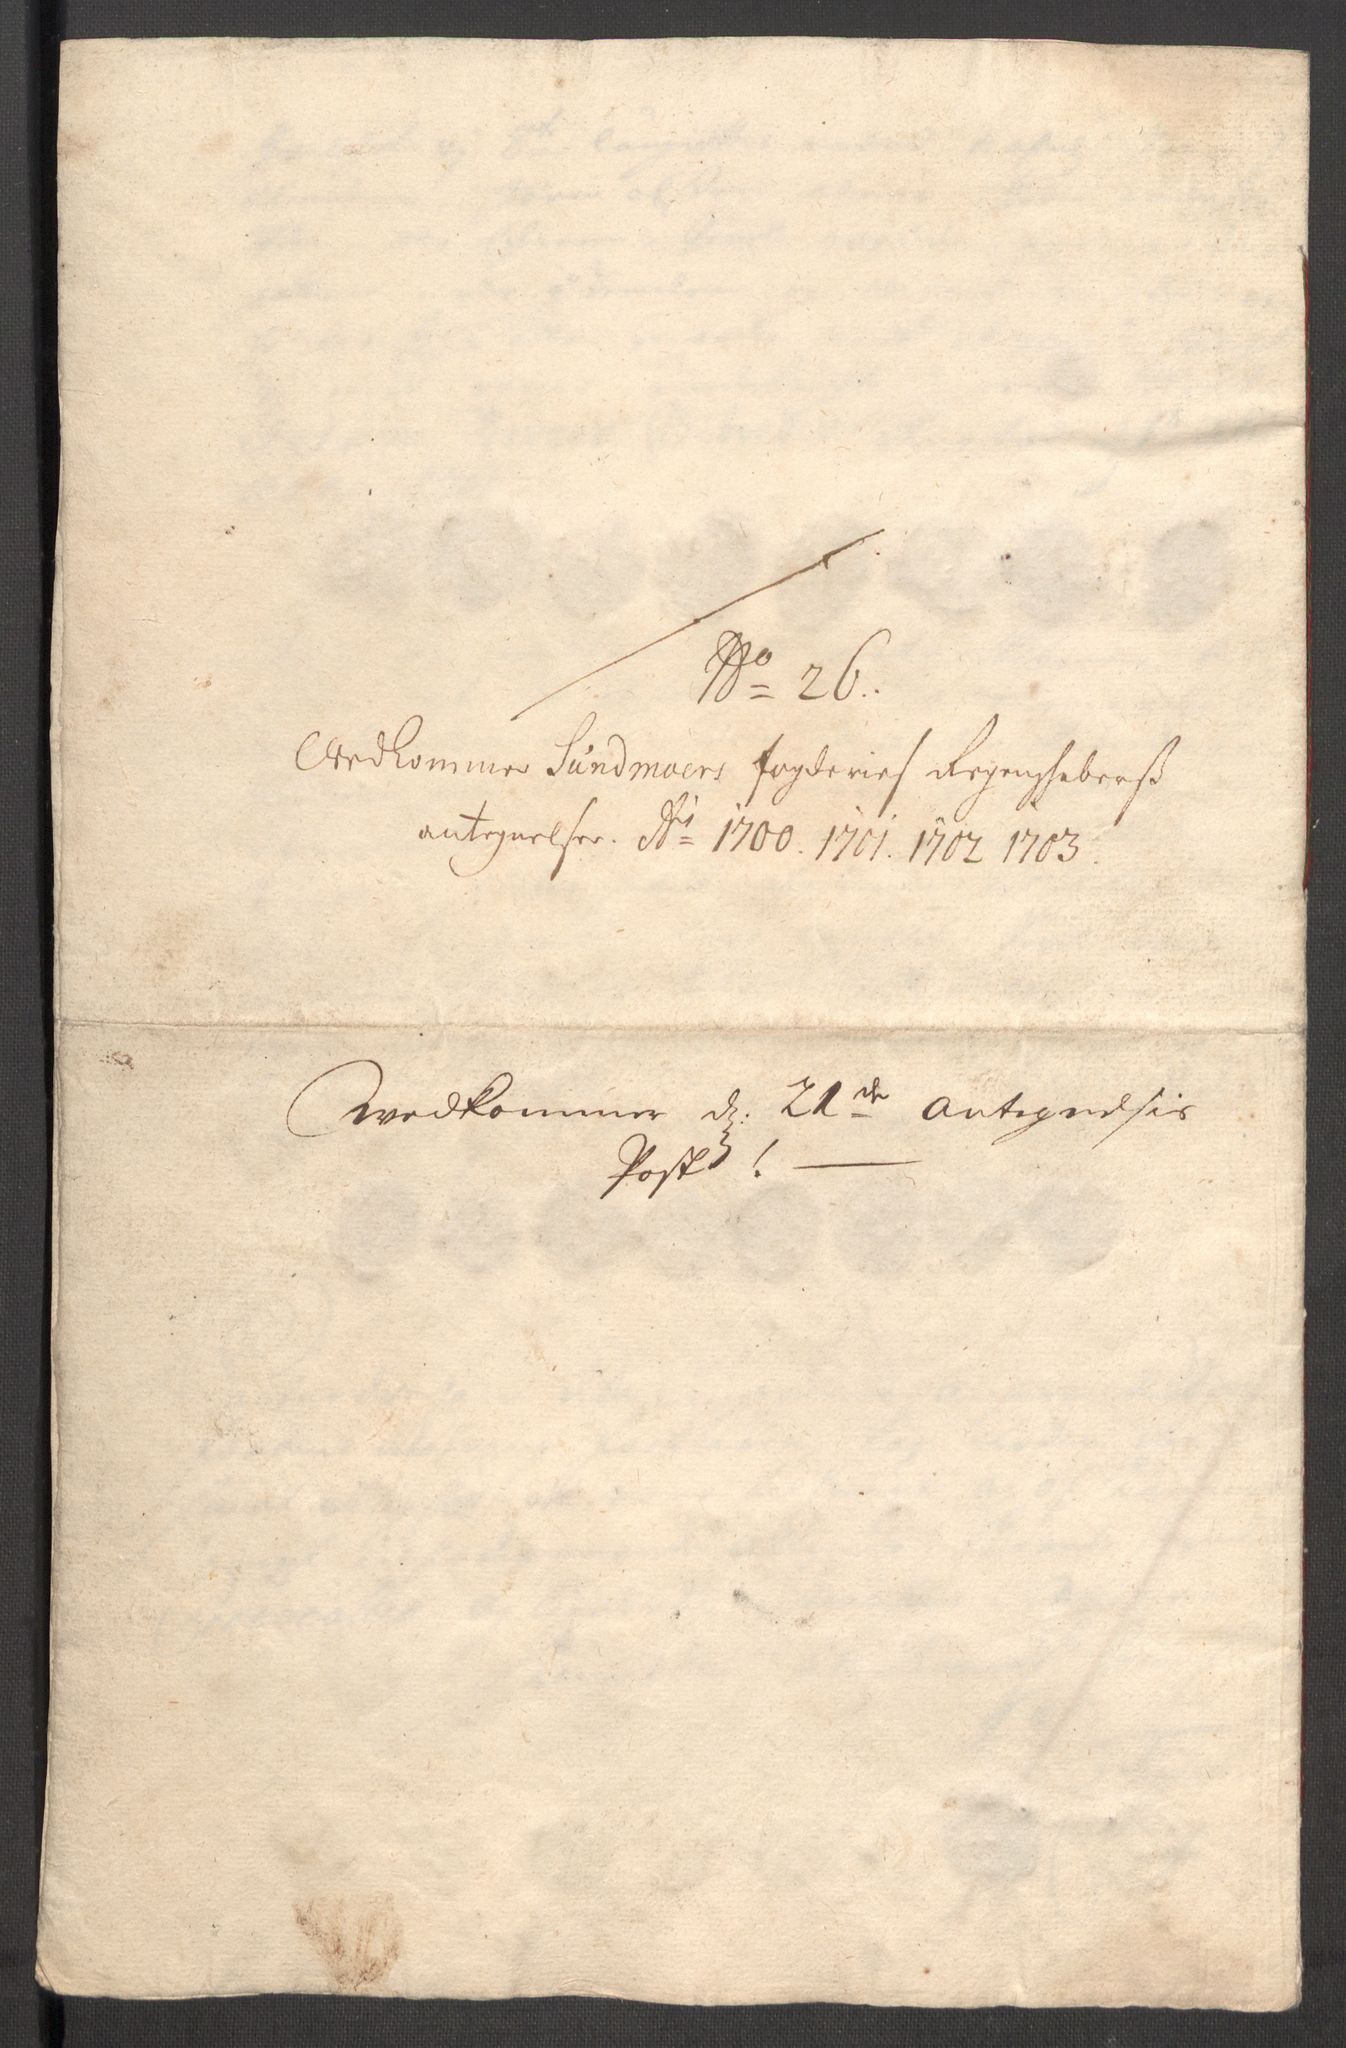 No 26..
Vedkommer Sundmoers fogderies Regenskabers
antegnelser. No 1700. 1701. 1702 1703.
Vedkommer d: 21de Antegnelsis
Post !